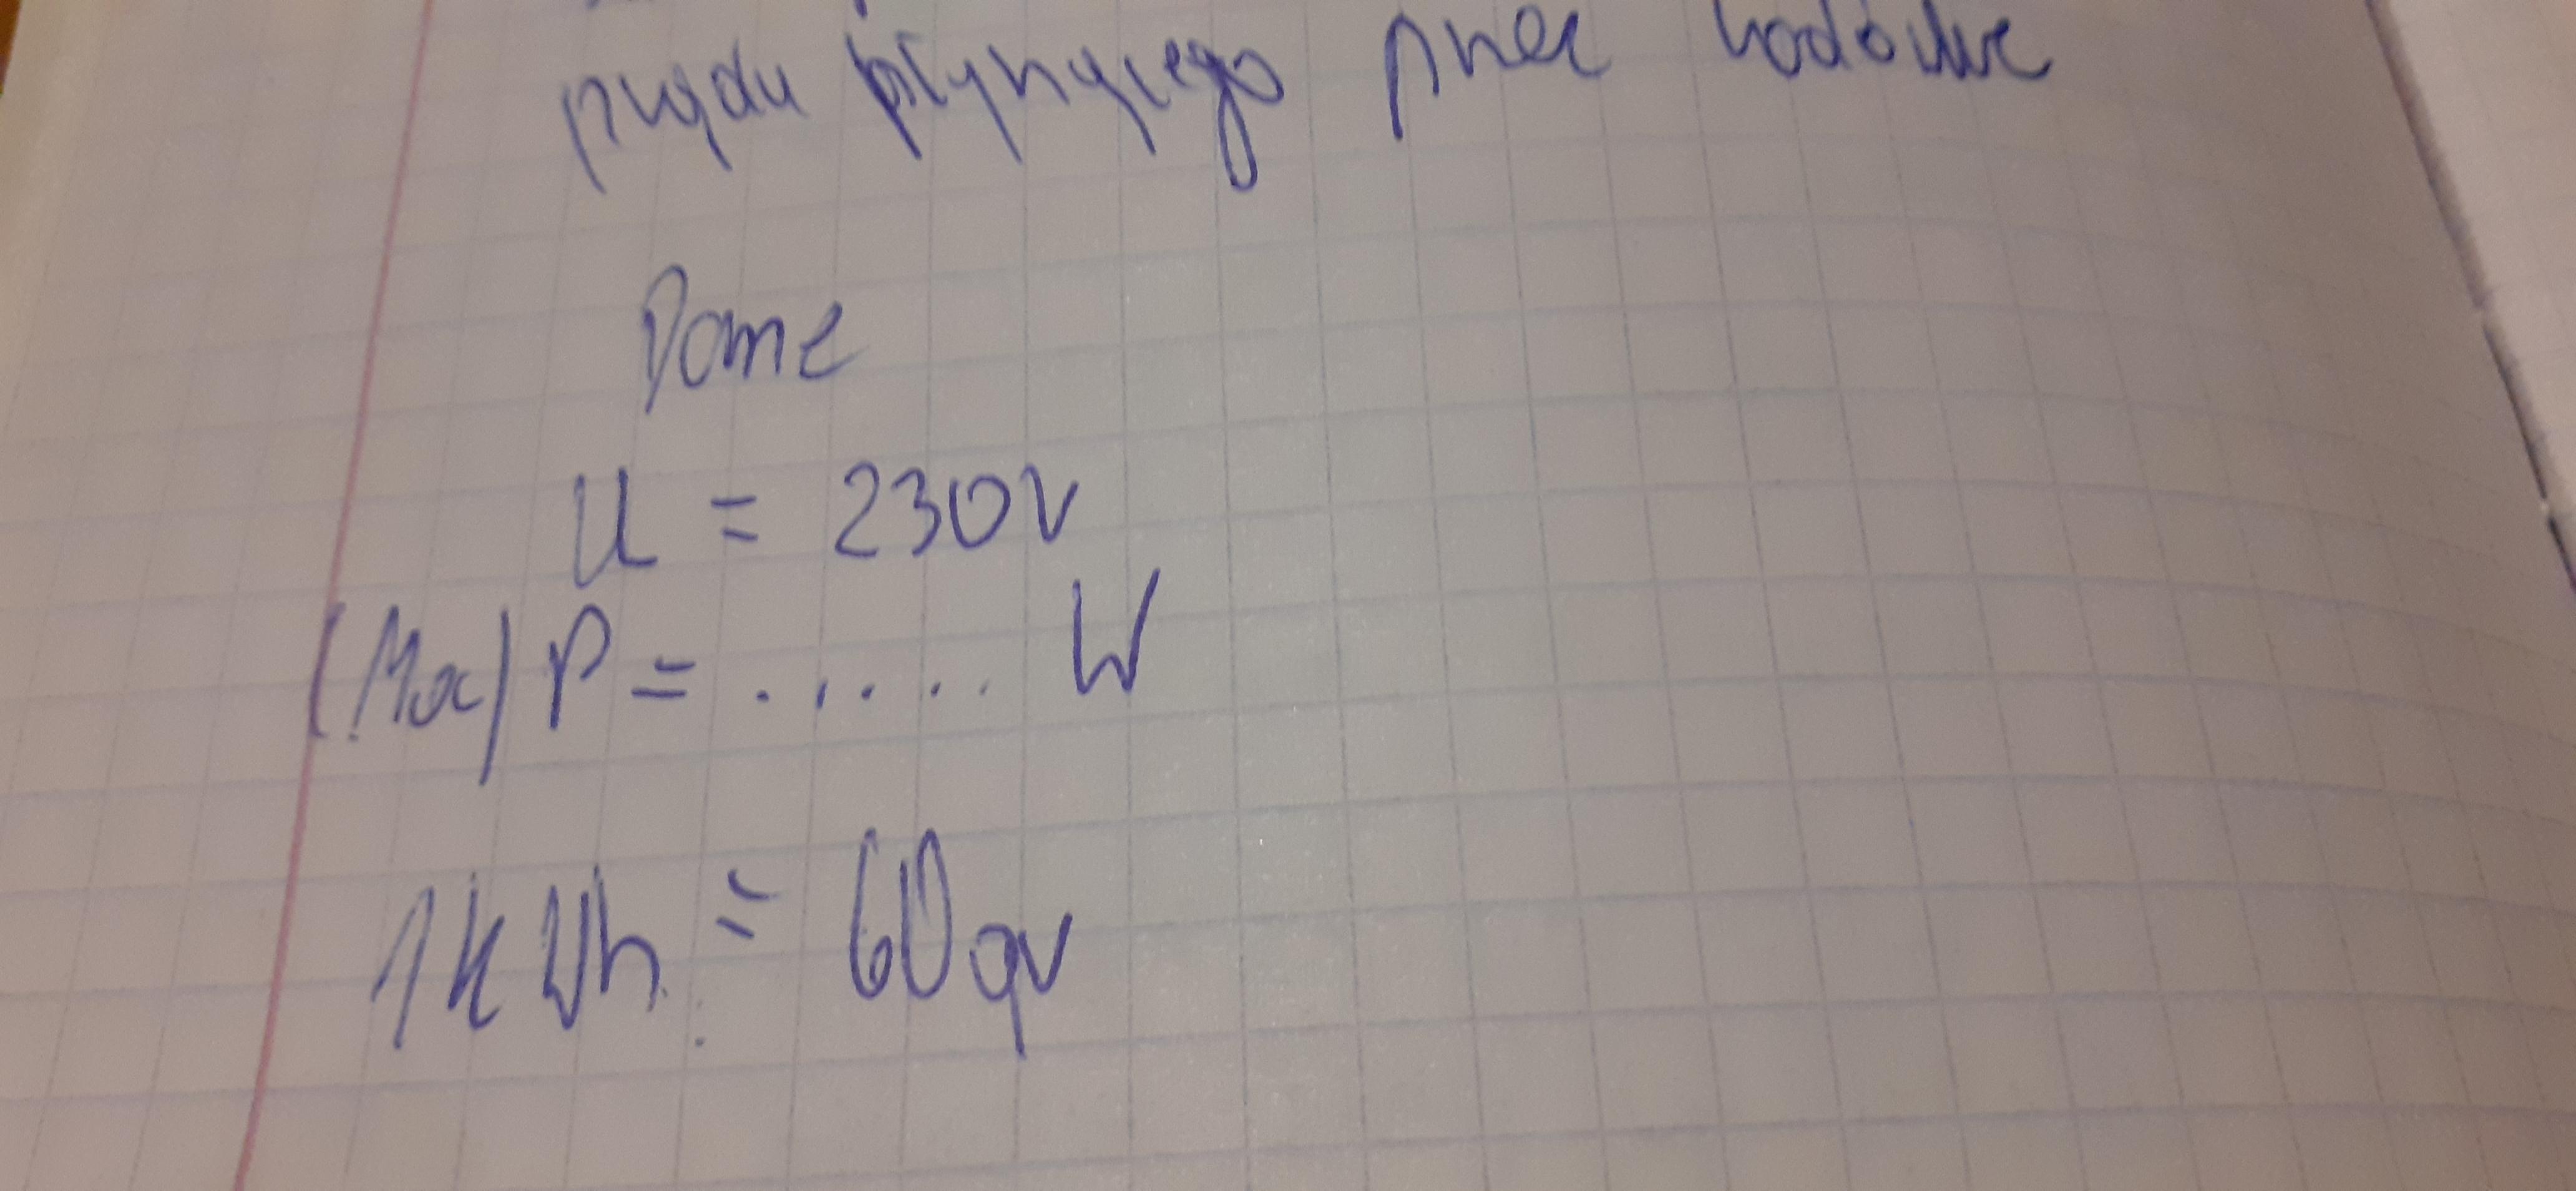 prądu płynącego przez lodówkę
Dane
U = 230V
(Moc) P = ...... W
1kWh = 60gr